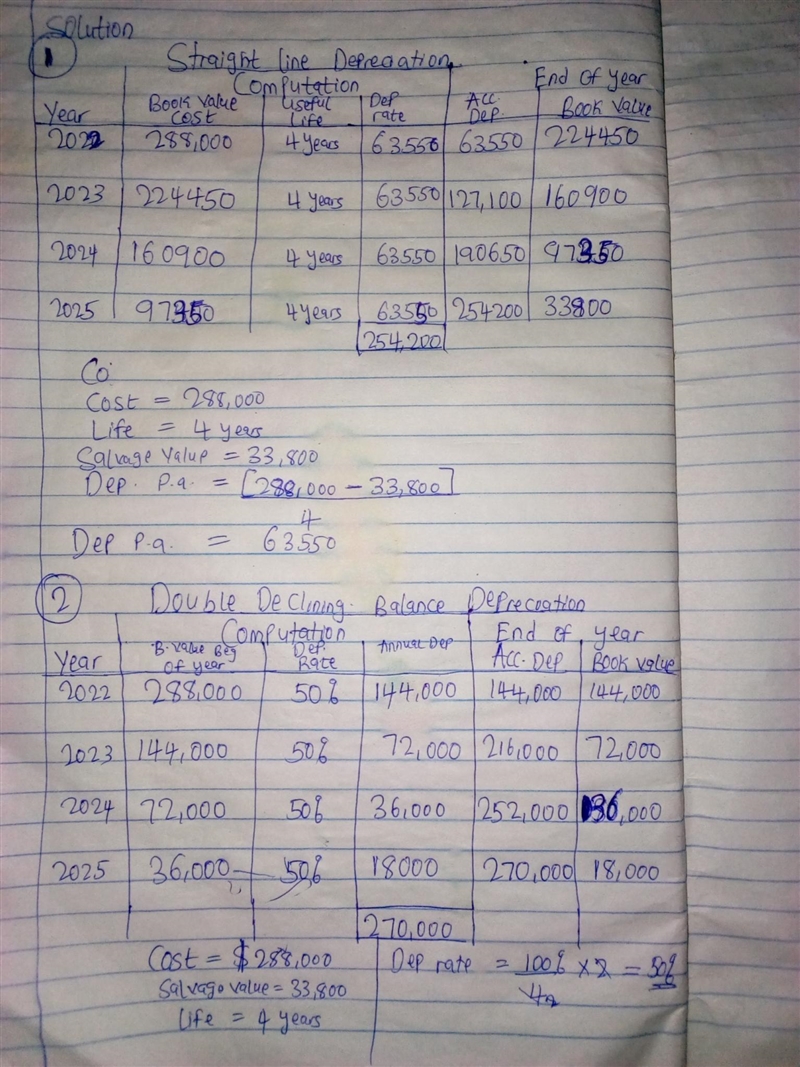 Solution
1 Straight Line Depreciation
Computation End Of year
Year Book Value Cost Useful Life Dep rate Acc. Dep. Book Value
2022 288,000 4 years 63550 63550 224450
2023 224450 4 years 63550 127,100 160900
2024 160900 4 years 63550 190650 97350
2025 97350 4 years 63550 254200 33800
254,200
Co
Cost = 288,000
Life = 4 years
Salvage Value = 33,800
Dep. P.a. = [288,000 - 33,800]
4
Dep P.a. = 63550
2 Double Declining Balance Deprecoation
Computation End of year
Year B. Value Beg Of year Dep. Rate Annual Dep Acc. Dep Book Value
2022 288,000 50% 144,000 144,000 144,000
2023 144,000 50% 72,000 216,000 72,000
2024 72,000 50% 36,000 252,000 36,000
2025 36,000 50% 18000 270,000 18,000
270,000
Cost = $288,000 Dep rate = 100% × 2 = 50%
Salvago value = 33,800
Life = 4 years